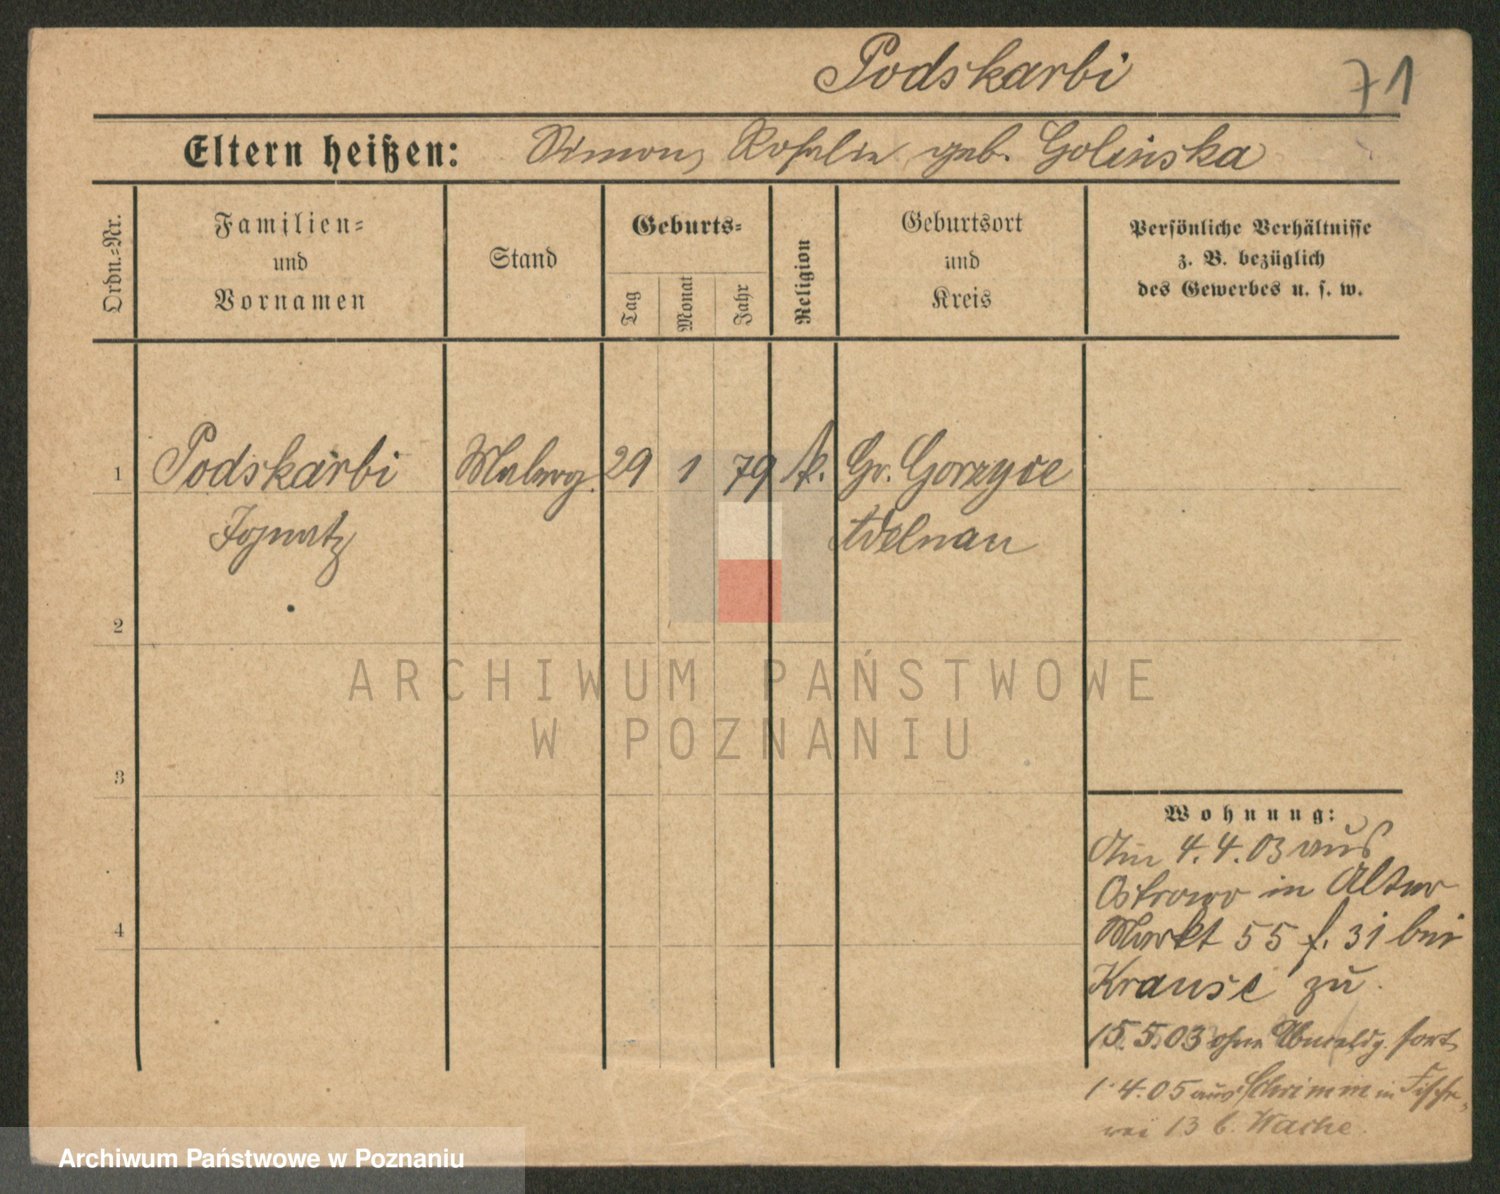 Podskarbi
71
Eltern heißen: Simon, Rosalie geb. Golinska
Ordn.=Nr.
Familien=
und
Vornamen
Stand
Geburts=
Tag
Monat
Jahr
Religion
Geburtsort
und
Kreis
Persönliche Verhältnisse
z. B. bezüglich
des Gewerbes u. s. w.
1 Podskarbi 29 1 79 k. Gr. Gorzyce
Ignatz Adelnau
2
3
4
ARCHIWUM PAŃSTWOWE
W POZNANIU
Wohnung:
Am 4.4.03 aus
Ostrowo in Alter
Markt 55 f. 31 bei
Krause zu.
15.5.03 ohne Abmeldg. fort
1.4.05 aus Schrimm in Fische,
rei 13 b. Wache.
Archiwum Państwowe w Poznaniu